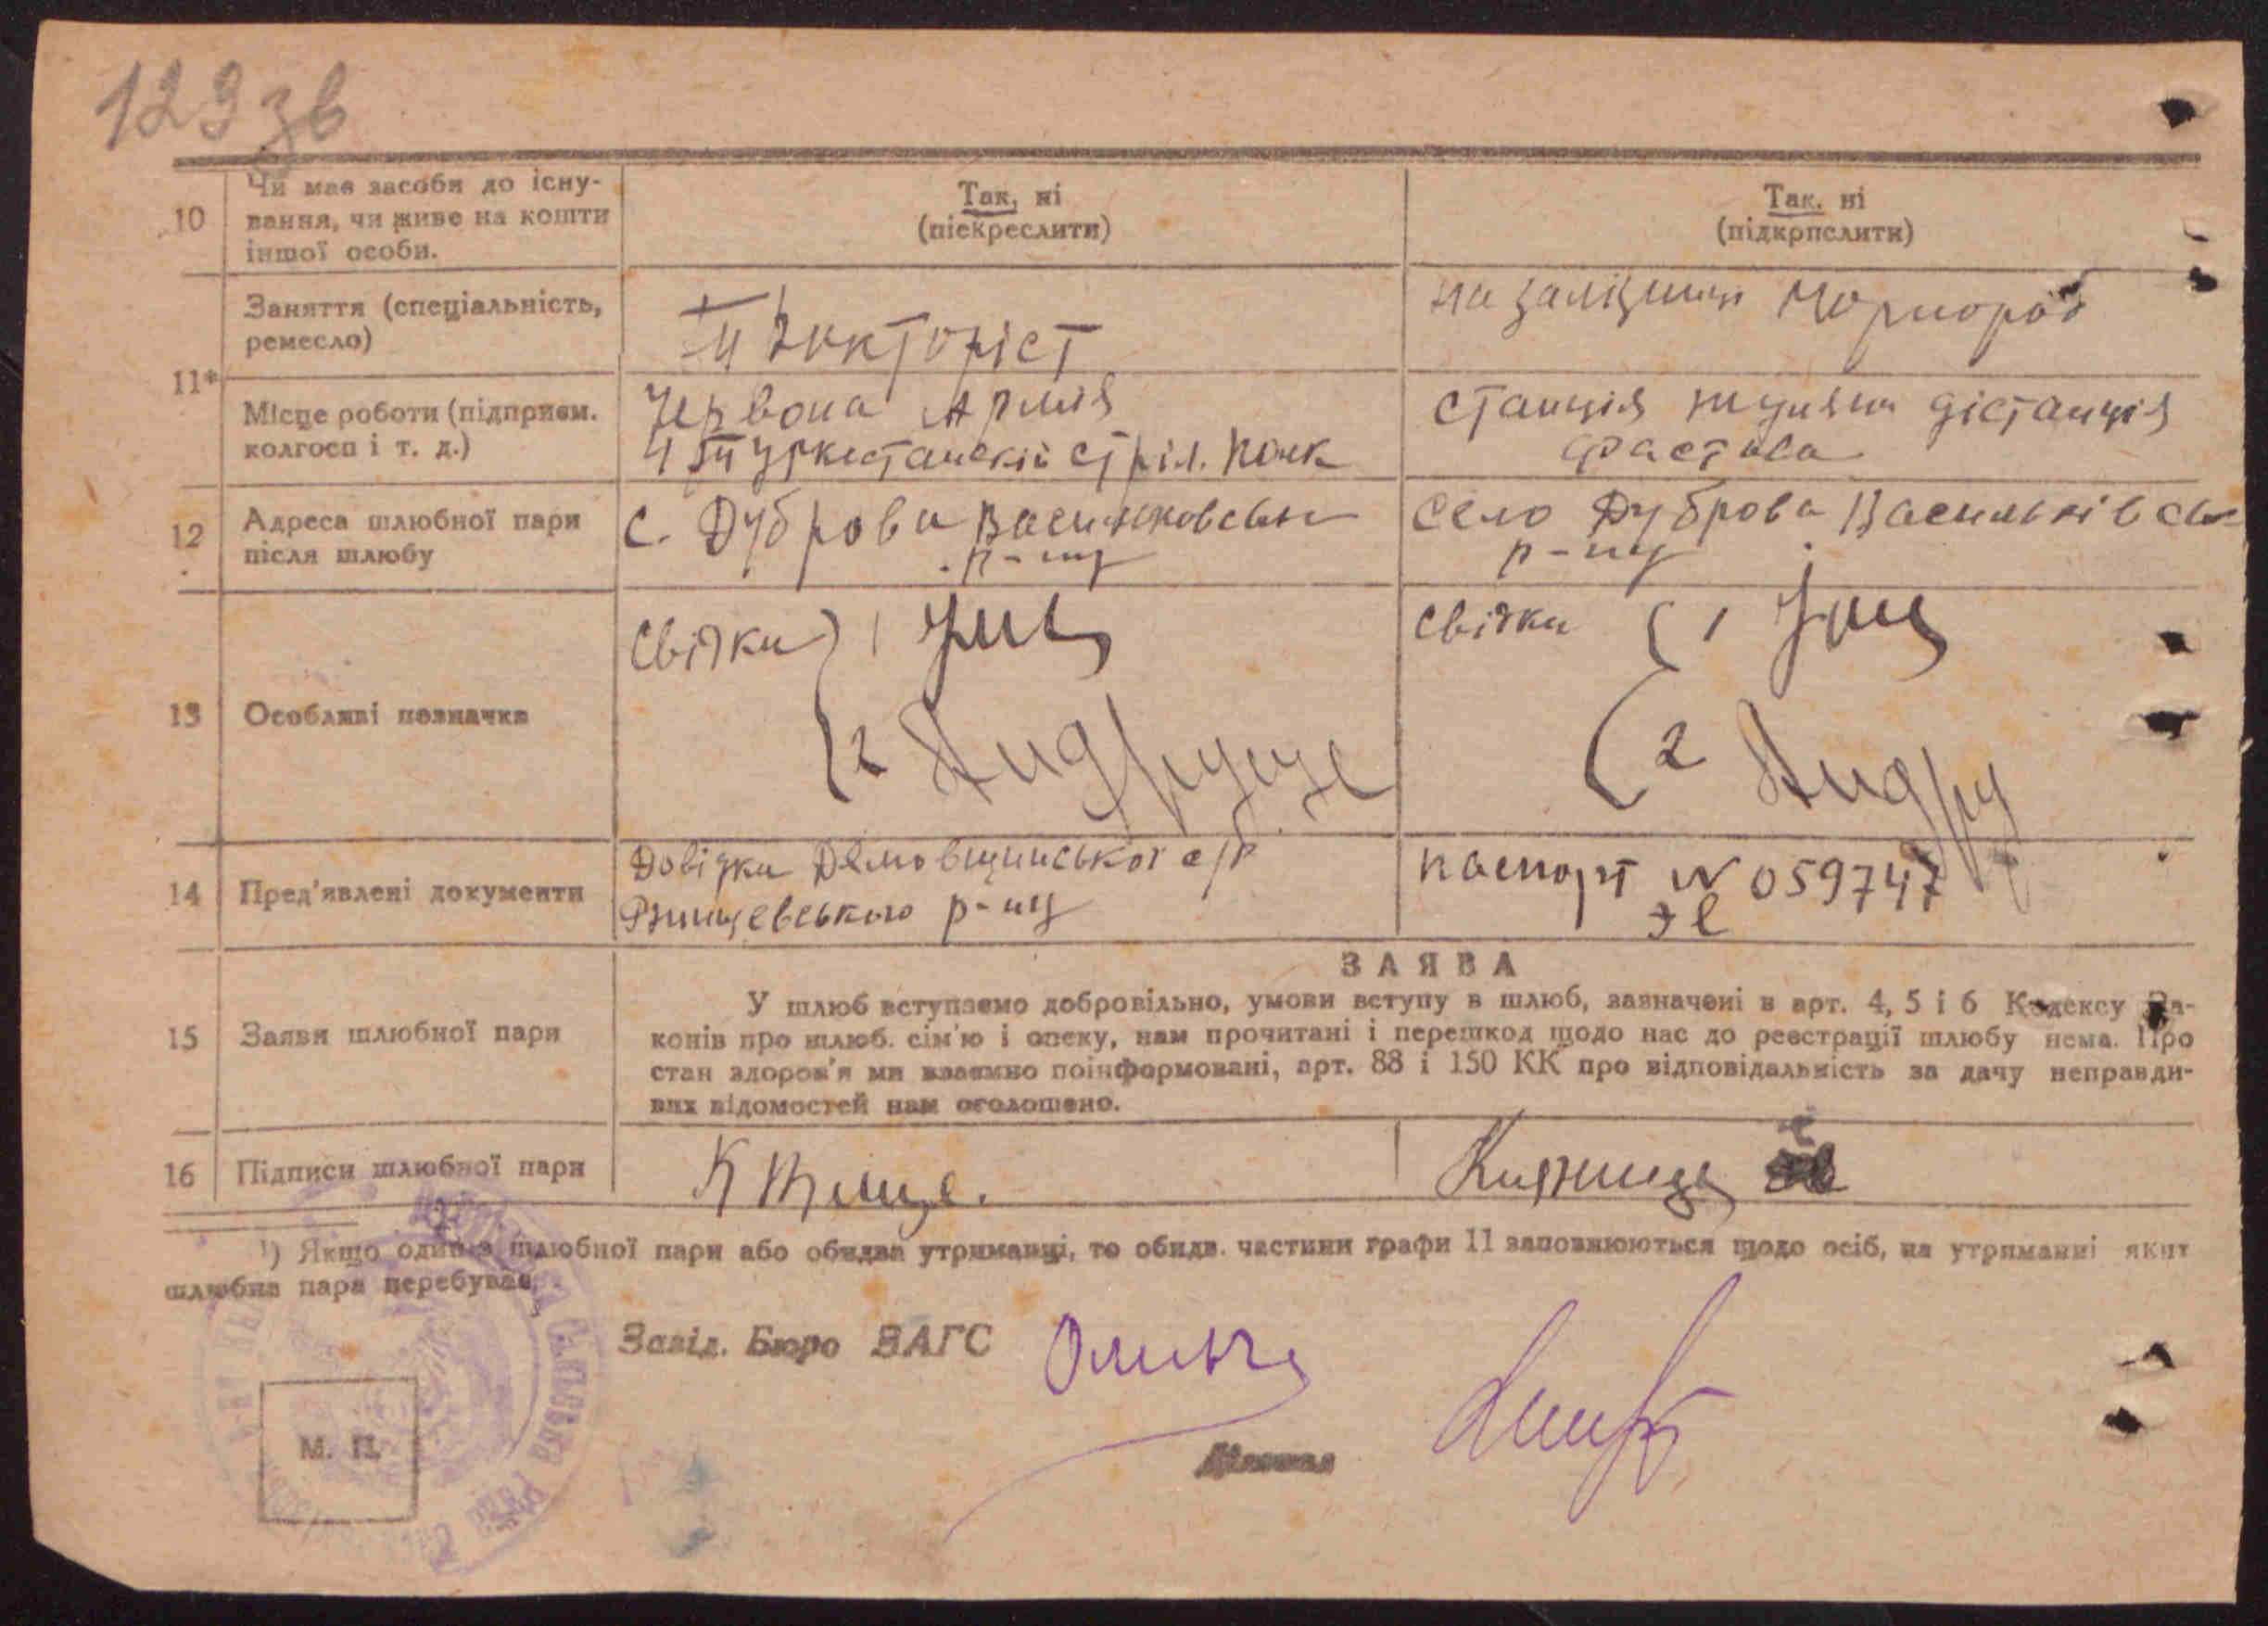 123 зв
10
Чи має засоби до існу-
вання, чи живе на кошти
іншої особи.
Так, ні
(піекреслити)
Так. ні
(підкрпслити)
11*
Заняття (спеціальність,
ремесло)
на залізниці Чорнороб
Місце роботи (підприєм.
колгосп і т. д.)
Червона Армія
4 Туркестанскій стріл. полк
станція дістанція
Фастова
12
Адреса шлюбної пари
після шлюбу
с. Дуброва
р-ну
село Дуброва Васильківськ
р-ну
13
Особливі позначки
Свідки 1
2
Свідки 1
2
14
Пред'явлені документи
Довідка Демовщинської с/р
Ржищевського р-ну
паспорт № 059747
15
Заяви шлюбної пари
ЗАЯВА
У шлюб вступаємо добровільно, умови вступу в шлюб, зазначені в арт. 4, 5 і 6 Кодексу За-
конів про шлюб. сім'ю і опеку, нам прочитані і перешкод щодо нас до реєстрації шлюбу нема. Про
стан здоров'я ми взаємно поінформовані, арт. 88 і 150 КК про відповідальність за дачу неправди-
вих відомостей нам оголошено.
16
Підписи шлюбної пари
¹) Якщо один з шлюбної пари або обидва утриманці, то обидв. частини графи 11 заповнюються щодо осіб, на утриманні яких
шлюбна пара перебуває.
Завід. Бюро ЗАГС
М. П.